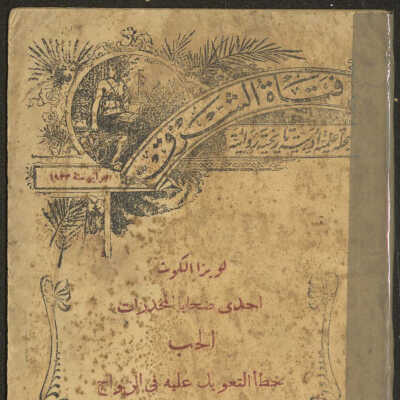 فتاة الشرق
مجلة علمية أدبية تاريخية روائية
سنة ١٩٣٣
لويزا الكوت
احدى ضحايا المخدرات
الحب
خطأ التعويل عليه في الزواج